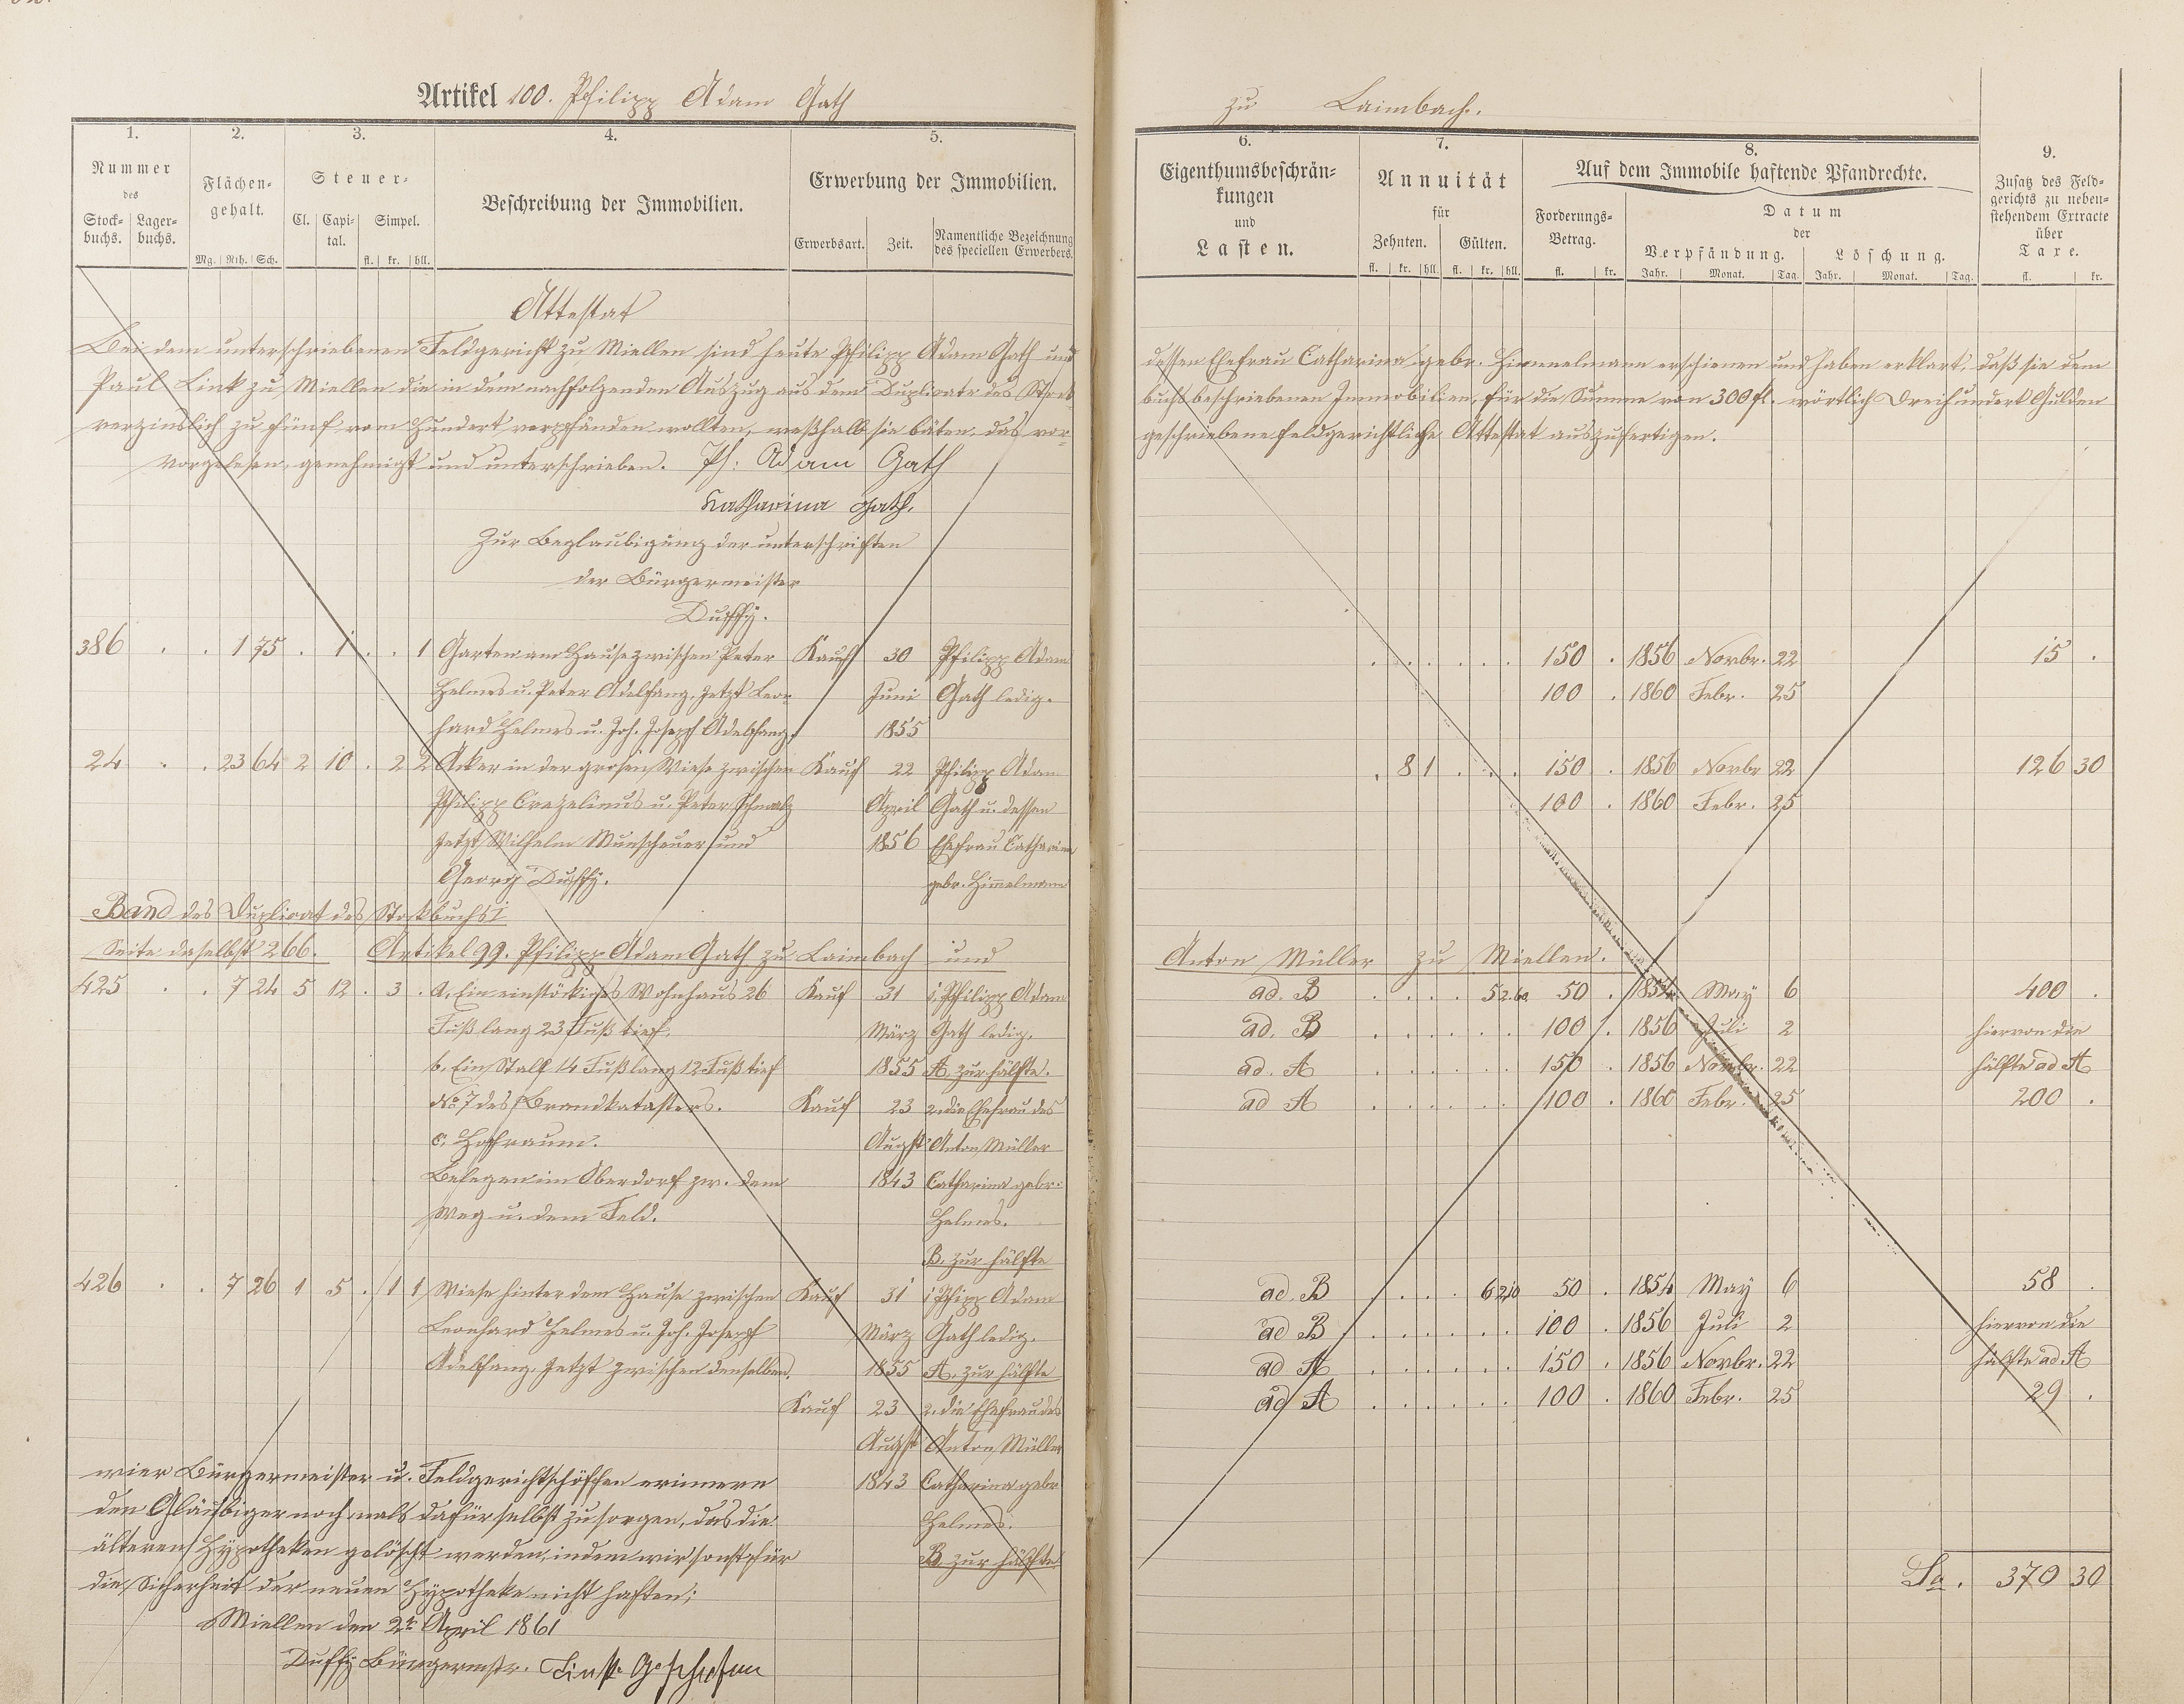 Artikel 100. Philipp Adam Gath zu Laimbach.
1. 2. 3. 4. 5. 6. 7. 8. 9.
Nummer des Stock-buchs. Lager-buchs.
Flächen-gehalt. Mg. Rth. Sch.
Steuer- Cl. Capi-tal. Simpel. fl. kr. hll.
Beschreibung der Immobilien.
Erwerbung der Immobilien.
Erwerbsart. Zeit. Namentliche Bezeichnung des speciellen Erwerbers.
Eigenthumsbeschrän-kungen und Lasten.
Annuität für Zehnten. Gülten. fl. kr. hll. fl. kr. hll.
Auf dem Immobile haftende Pfandrechte.
Forderungs-Betrag. fl. kr.
Datum der Verpfändung. Löschung.
Jahr. Monat. Tag. Jahr. Monat. Tag.
Zusatz des Feld-gerichts zu neben-stehendem Extracte über Taxe. fl. kr.
Attestat
Bei dem unterschriebenen Feldgericht zu Miellen sind heute Philipp Adam Gath und dessen Ehefrau Catharina gebr. Himmelmann erschienen und haben erklärt, daß sie dem
Paul Link zu Miellen die in dem nachfolgenden Auszug aus dem Duplicate des Stock-buchs beschriebenen Immobilien, für die Summe von 300 fl. wörtlich Dreihundert Gulden
verzinslich zu fünf vom Hundert verpfänden wollten, weßhalb sie bäten, das vor-geschriebene feldgerichtliche Attestat auszufertigen.
Vorgelesen, genehmigt und unterschrieben. Ph: Adam Gath
Katharina Gath.
Zur Beglaubigung der unterschriften
der Bürgermeister
Duffy.
386 . . 1 75 . 1 . . 1 Garten am Hause zwischen Peter Kauf 30 Philipp Adam . . . . . . 150 . 1856 Novbr. 22 15 .
Helmes u. Peter Adelfang, jetzt Leon- Juni Gath ledig. 100 . 1860 Febr. 25
hard Helmes u. Joh. Joseph Adelfang. 1855
24 . . 23 64 2 10 . 2 2 Acker in der grosen Wiese zwischen Kauf 22 Philipp Adam . 8 1 . . . 150 . 1856 Novbr 22 126 30
Philipp u. Peter Schmalz April Gath u. dessen 100 . 1860 Febr. 25
jetzt Wilhelm Munscheuer und 1856 Ehefrau Catharina
Georg Duffy. gebr. Himmelmann
Band des Duplicat des Stockbuchs I
Seite daselbst 266. Artikel 99. Philipp Adam Gath zu Laimbach und Anton Müller zu Miellen.
425 . . 7 24 5 12 . 3 . a, Ein einstöckiges Wohnhaus 26 Kauf 31 1, Philipp Adam ad. B . . . . 50 . 1854 May 6 400 .
Fuß lang 23 Fuß tief. März Gath ledig. ad. B . . . . . . 100 . 1856 Juli 2 hiervon die
b, Ein Stall 14 Fuß lang 12 Fuß tief 1855 A, zur Hälfte. ad. A . . . . . . 150 . 1856 Novbr. 22 hälfte ad A
No 7 des Brandkatasters. Kauf 23 2. die Ehefrau des ad A . . . . . . 100 . 1860 Febr. 25 200 .
c. Hofraum. Augst Anton Müller
Belegen im Oberdorf zw. dem 1843 Catharina gebr.
Weg u. dem Feld. Helmes.
B. zur Hälfte
426 . . 7 26 1 5 . 1 1 Wiese hinter dem Hause zwischen Kauf 31 1 Phipp Adam ad. B . . . . 50 . 1854 May 6 58 .
Leonhard Helmes u. Joh. Joseph März Gath ledig. ad B . . . . . . 100 . 1856 Juli 2 hiervon die
Adelfang, jetzt zwischen denselben. 1855 A. zur Hälfte ad A . . . . . . 150 . 1856 Novbr. 22 hälfte ad. A
Kauf 23 2. die Ehefrau des ad A . . . . . . 100 . 1860 Febr. 25 29 .
Augst Anton Müller
wier Bürgermeister u. Feldgerichtschöffen erinnern 1843 Catharina gebr
den Gläubiger noch mals dafür selbst zu sorgen, das die Helmes.
älteren Hypotheken gelöscht werden, indem wir sonst für B. zur Hälfte
die Sicherheit der neuen Hypotheke nicht haften; Sa. 370 30
Miellen den 2t April 1861
Duffy Bürgermstr.